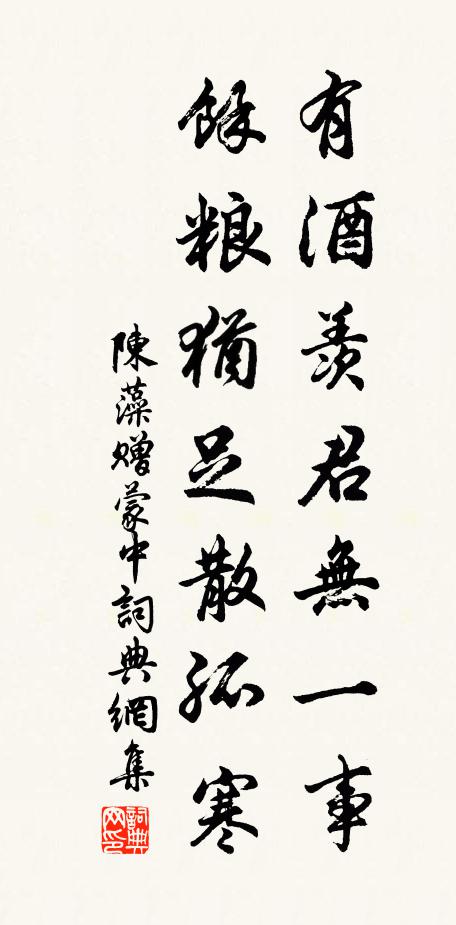 有酒羨君無一事
餘粮猶足散孤寒
陳藻贈蒙中詞典網集
詞典网印